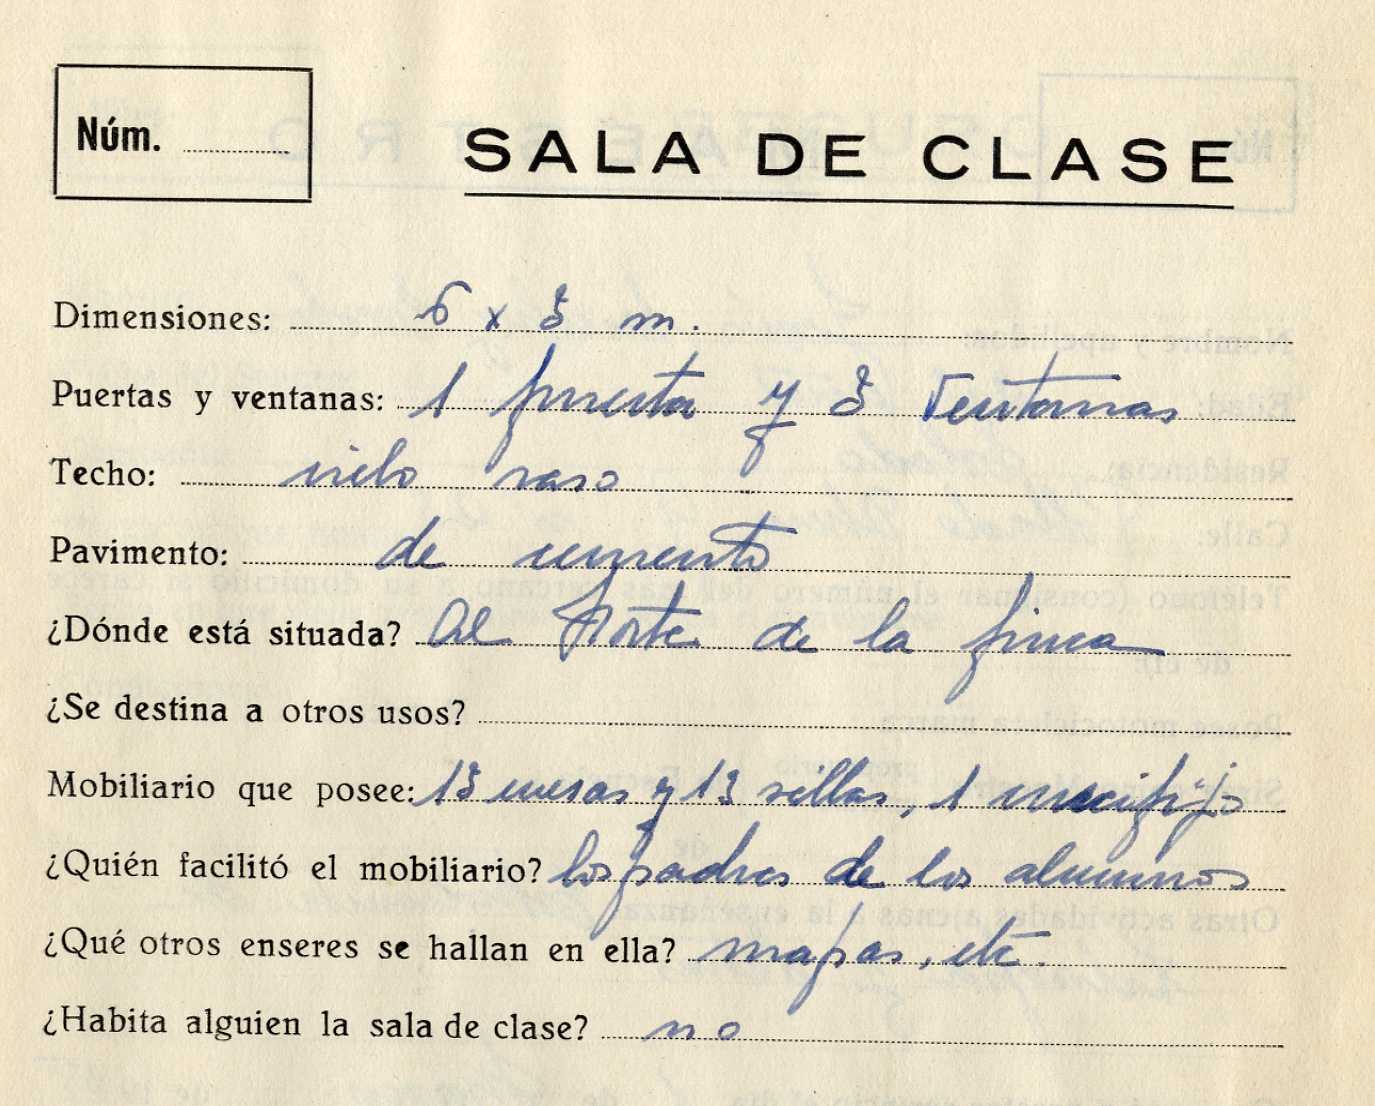 Núm. ............
SALA DE CLASE
Dimensiones: 6 x 3 m.
Puertas y ventanas: 1 puerta y 3 Ventanas
Techo: cielo raso
Pavimento: de cemento
¿Dónde está situada? Al Norte de la finca
¿Se destina a otros usos?
Mobiliario que posee: 13 mesas y 13 sillas, 1 crucifijo
¿Quién facilitó el mobiliario? los padres de los alumnos
¿Qué otros enseres se hallan en ella? mapas, etc.
¿Habita alguien la sala de clase? no